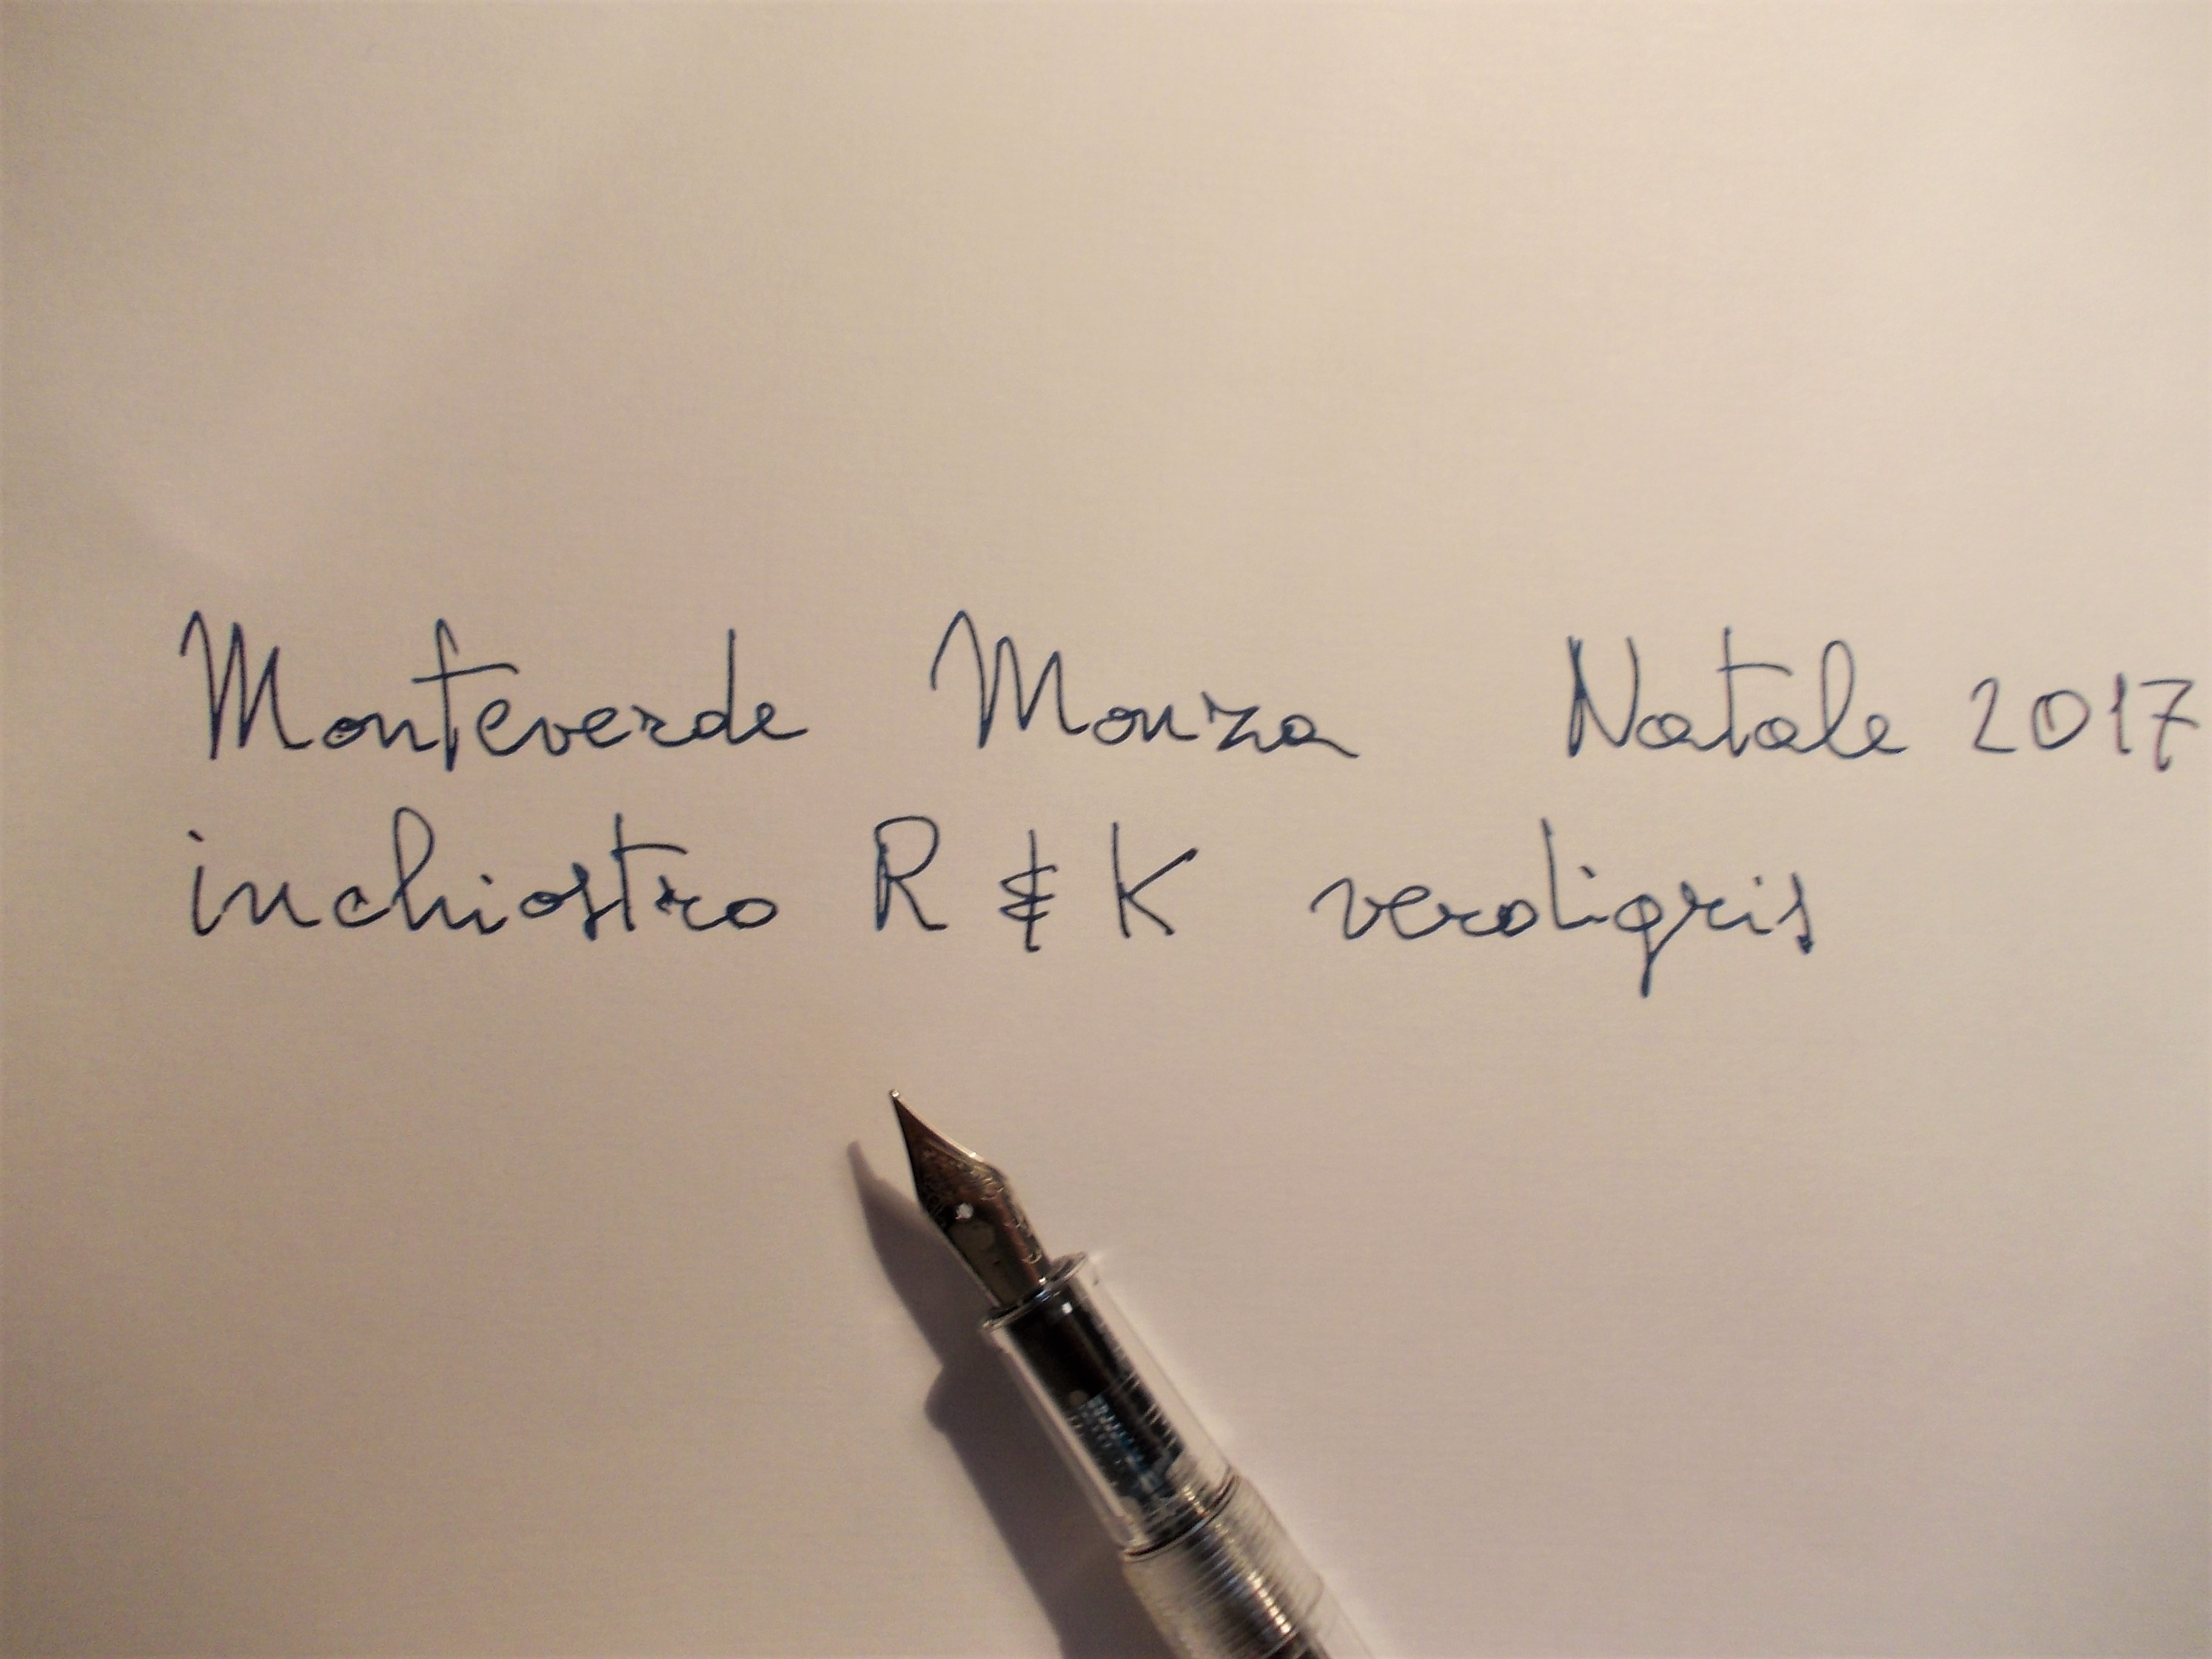 Monteverde Monza Natale 2017
inchiostro R & K verdigris